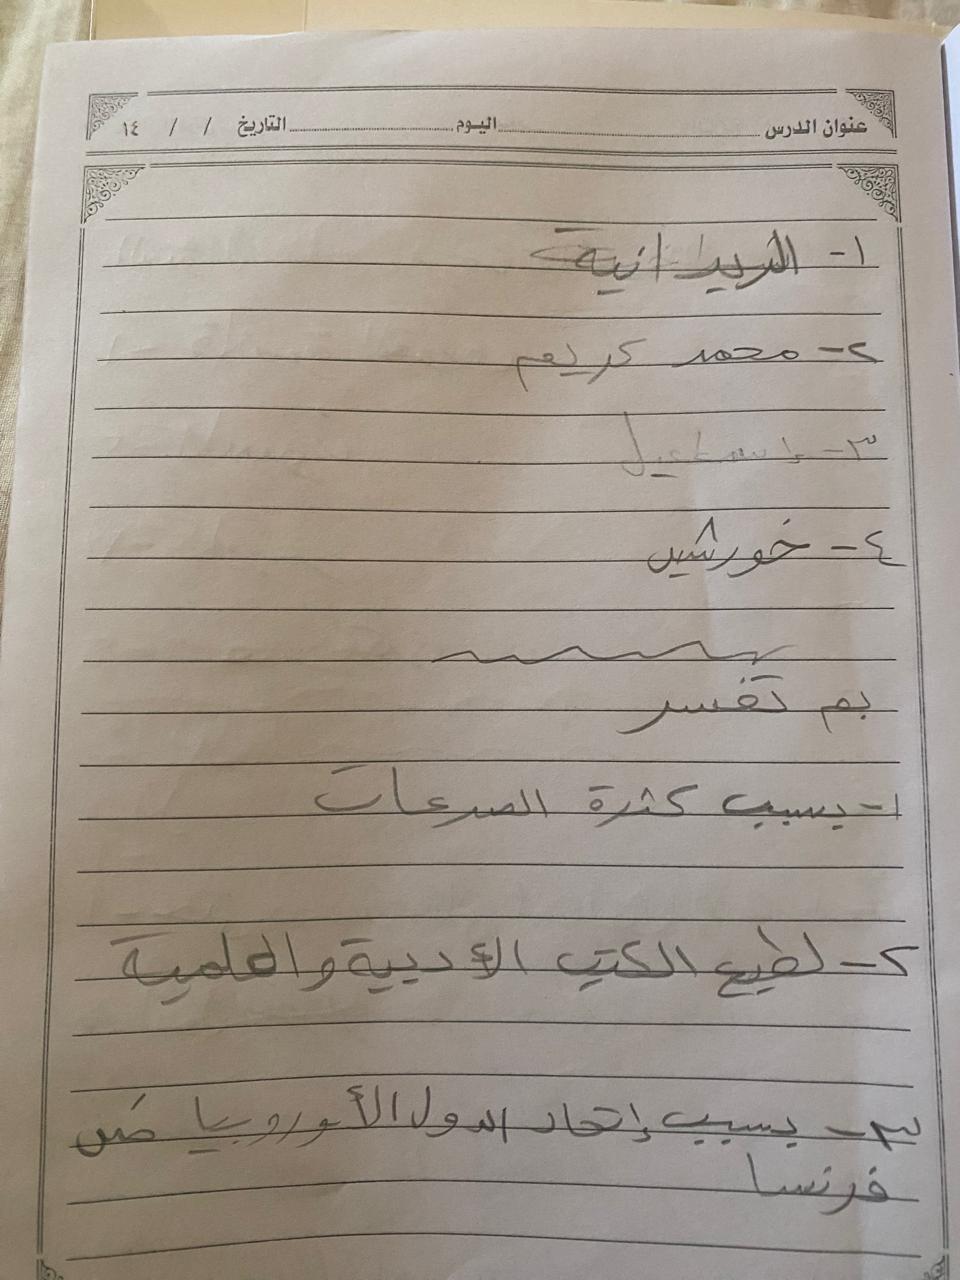 عنوان الدرس اليوم التاريخ / / ١٤
١- البريطانية
٢- محمد كريم
٣- إسماعيل
٤- خورشيد
بم تفسر
١- بسبب كثرة الصرعات
٢- لطبع الكتب الأدبية والعلمية
٣- بسبب إتحاد الدول الأوروبيا ض
فرنسا